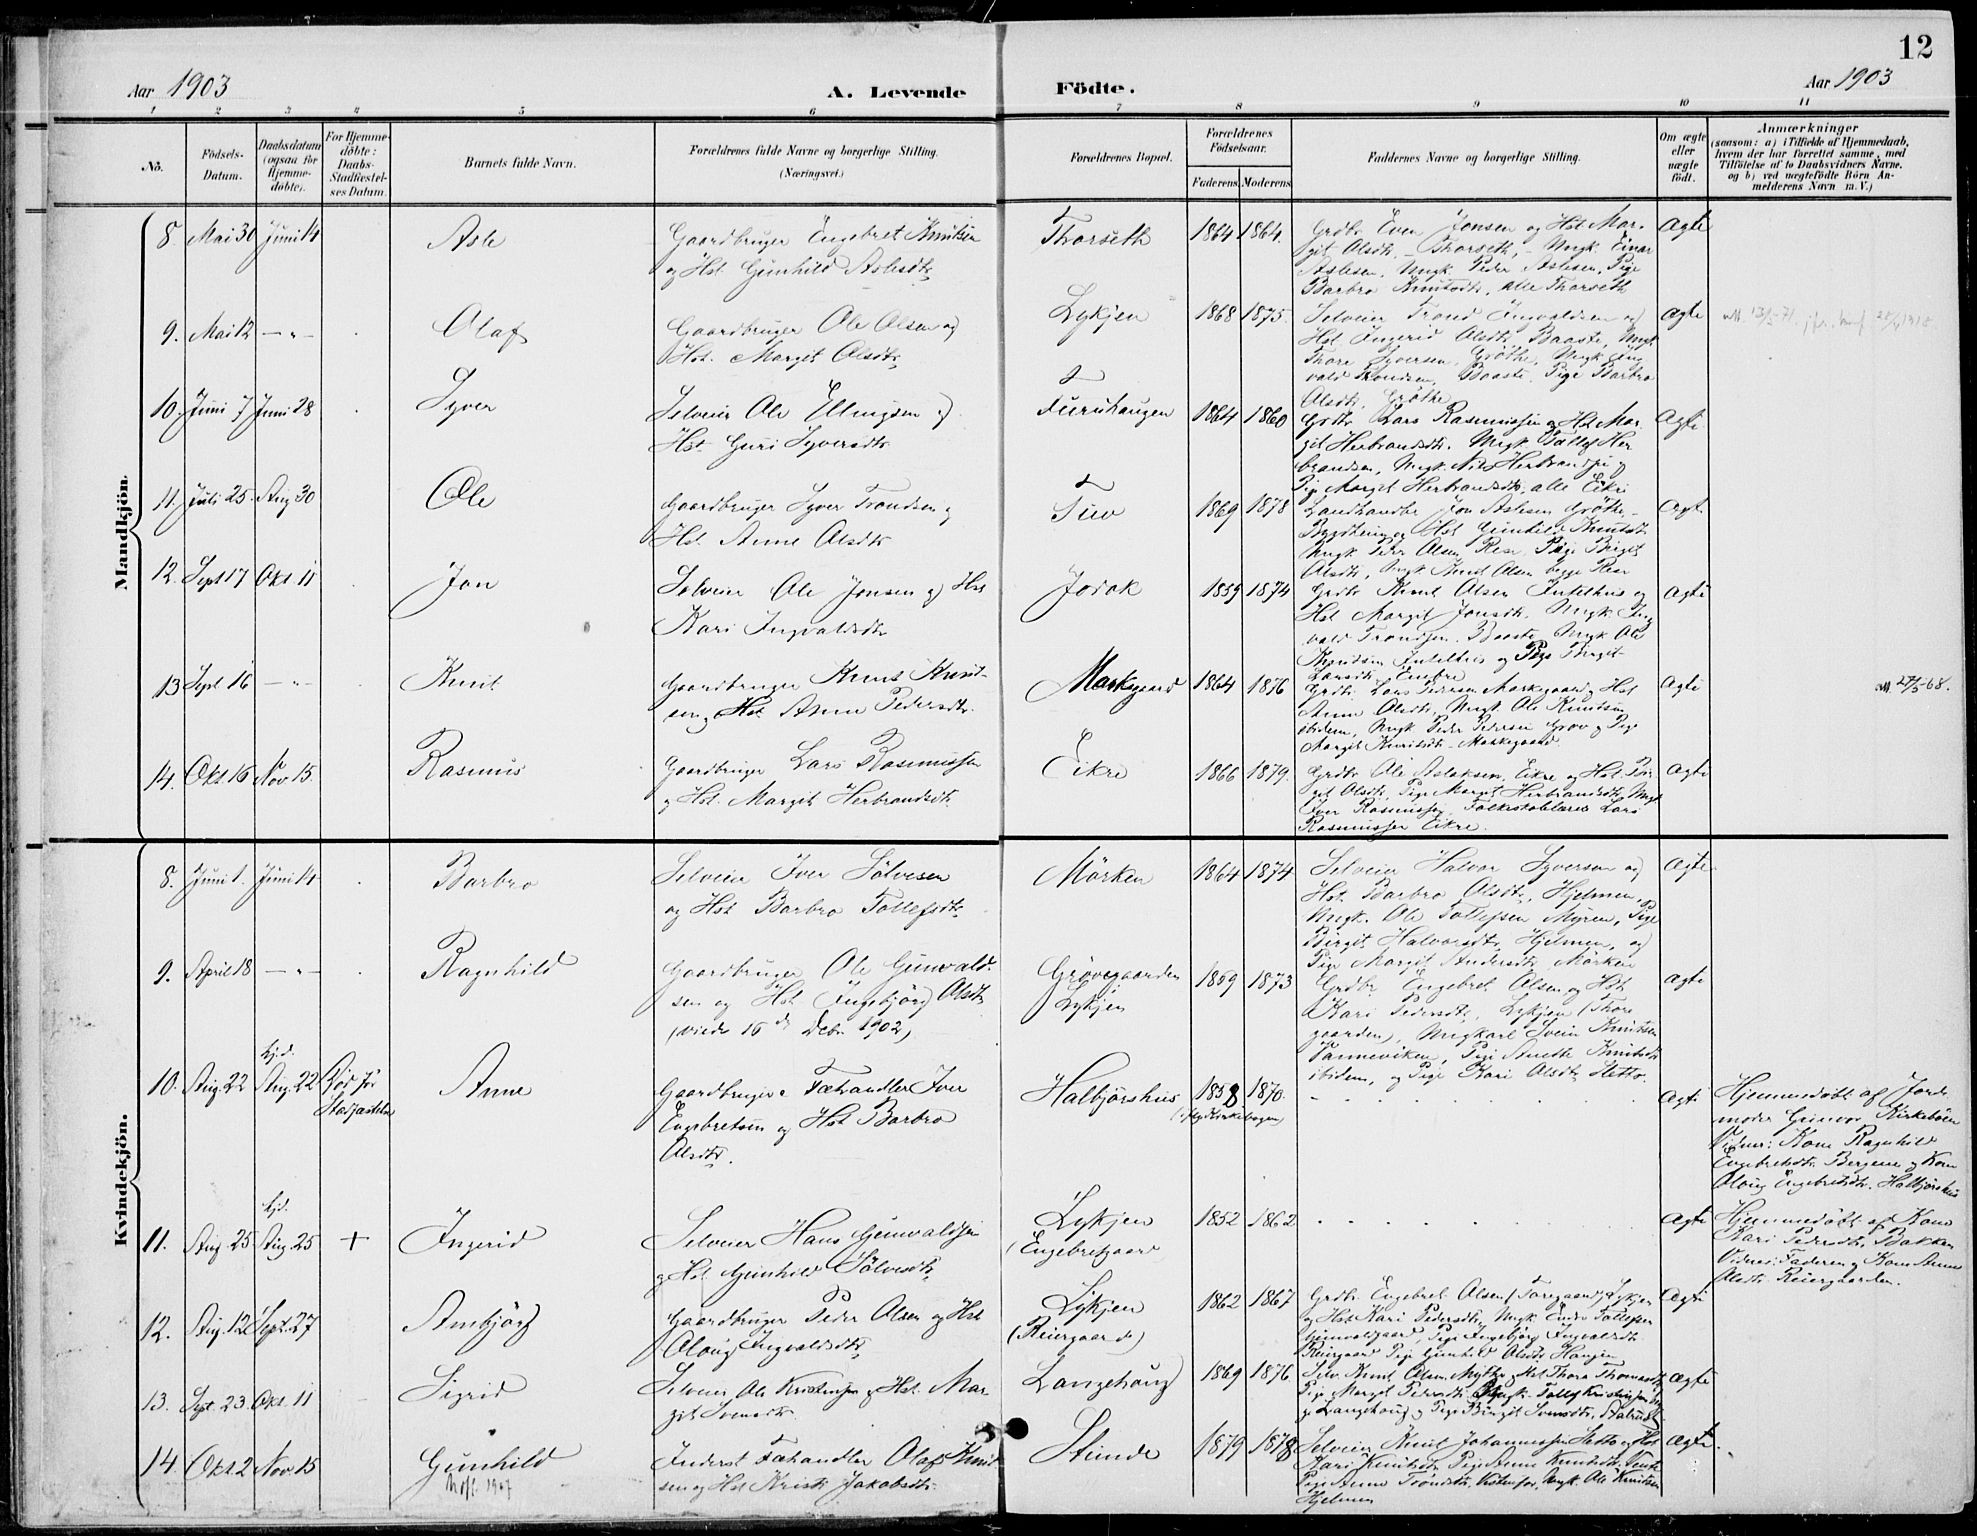 12
Aar 1903
A. Levende
Födte.
Aar 1903
1 2 3 4 5 6 7 8 9 10 11
No.
Födsels-
Datum.
Daabsdatum
(ogsaa for
Hjemme-
döbte).
For Hjemme-
döbte:
Daabs-
Stadfæstel-
ses Datum.
Barnets fulde Navn.
Forældrenes fulde Navne og borgerlige Stilling.
(Næringsvei.)
Forældrenes Bopæl.
Forældrenes
Födselsaar.
Faderens Moderens
Faddernes Navne og borgerlige Stilling.
Om ægte
eller
uægte
födt.
Anmærkninger
(saasom: a) i Tilfælde af Hjemmedaab,
hvem der har forrettet samme, med
Tilföielse af to Daabsvidners Navne,
og b) ved uægtefödte Börn An-
melderens Navn m. V.)
Mandkjön.
8 Mai 30 Juni 14
Asle
Gaardbruger Engebret Knutsen
og Hst. Gunhild Aslesdtr
Thorseth
1864 1864
Grdbr Even Jonsen og Hst Mar-
git Olsdtr Thorseth, Ungk. Einar
Aslesen, Ungk. Peder Aslesen, Pige
Barbro Knutsdtr, alle Thorseth
Ægte
9. Mai 12 — " —
Olaf
Gaardbruger Ole Olsen og
Hst. Margit Olsdtr
Lykjen
1868 1875
Selveier Trond Ingvaldsen og
Hst Ingerid Olsdtr Baaste, Ungk.
Thore Syversen Gröthe, Ungk Ing
vald Trondsen, Baaste, Pige Barbro
Olsdtr Gröthe
Ægte
10. Juni 7 Juni 28
Syver
Selveier Ole Ellingsen og
Hst. Guri Syversdtr
Furuhaugen
1864 1860
Grdbr Lars Rasmussen og Hst Mar
git Herbrandsdtr. Ungk Tollef Her
brandsen, Ungk. Nils Herbrandsen og
Pige Margit Herbrandsdtr, alle Eikre
Ægte
11. Juli 25 Aug 30
Ole
Gaardbruger Syver Trondsen og
Hst Anne Olsdtr
Tuv
1869 1878
Landhandler Jon Aslesen Gröthe
Hst Gunhild Knutsdtr
Ungk Peder Olsen Rese, Pige Birgit
Olsdtr, Ungk Knut Olsen begge Rese
Ægte
12. Sept 17 Okt 11
Jon
Selveier Ole Jonsen og Hst
Kari Ingvaldsdtr
Jordk
1859 1874
Grdbr Knut Olsen Intelhus og
Hst Margit Jonsdtr, Ungk Ing
vald Trondsen Baaste, Ungk Ole
Knutsen Intelhus og Pige Birgit
Larsdtr Embre
Ægte
13 Sept 16 — " —
Knut
Gaardbruger Knut Knud-
sen og Hst Anne Pedersdtr
Markegaard
1864 1876
Grdbr Lars Pedersen Markegaard og Hst
Anne Olsdtr, Ungk. Ole Knutsen
ibidem, Ungk Peder Pedersen Grov og Pige
Margit Knutsdtr Markegaard
Ægte
14. Okt 16 Nov 15
Rasmus
Gaardbruger Lars Rasmussen
og Hst. Margit Herbrandsdtr
Eikre
1866 1879.
Grdbr Ole Aslaksen, Eikre og Hst Bir
git Olsdtr, Pige Margit Herbrandsdtr, Ungk
Iver Rasmussen, Folkeskolelærer Lars
Rasmussen Eikre.
Ægte
Kvindekjön.
8. Juni 1. Juni 14
Barbro
Selveier Iver Sölvesen
og Hst Barbro Tollefsdtr
Mörken
1864 1874
Selveier Halvor Syversen og
Hst. Barbro Olsdtr, Hjelmen,
Ungk. Ole Tollefsen Myren, Pige
Birgit Halvorsdtr, Hjelmen, og
Pige Margit Andersdtr Mörken
Ægte
9. April 18 — " —
Ragnhild
Gaardbruger Ole Gunvald-
sen og Hst. Ingebjörg Olsdtr
(viede 16de Decbr. 1902)
Grövegaarden
Lykjen
1859 1873
Grdbr Engebret Olsen og Hst
Kari Pedersdtr, Lykjen (Thore
gaarden), Ungkarl Svein Knutsen
Vanneviken, Pige Anette Knutsdtr
ibidem, og Pige Kari Olsdtr Hetto
Ægte
10. Aug. 22
hjd.
Aug. 22
Död för
Stadfæstelsen
Anne
Gaardbruger & Fæhandler Iver
Engebretsen og Hst Barbro
Olsdtr.
Halbjörshus
1858 1870
Ægte
Hjemmedöbt af Jorde
moder Gunvor Kirkeböen
Vidner: Kone Ragnhild
Engebretsdtr Bergene og Kone
Olaug Engebretsdtr. Halbjörshus
11. Aug 25
hjd.
Aug 25
+
Ingerid
Selveier Hans Gunvaldsen
og Hst Gunhild Sölvesdtr
Lykjen
(Engebretgaard
1852 1862
Ægte
Hjemmedöbt af Kone
Kari Pedersdtr, Bakken
Vidner: Faderen og Kone Anne
Olsdtr Reiergaarden.
12. Aug. 12 Sept. 27
Ambjörg
Gaardbruger Peder Olsen og Hst
Olaug Ingvaldsdtr
Lykjen
(Reiergaarde)
1862 1867
Grdbr. Engebret Olsen (Toregaard) Lykjen
og Hst Kari Pedersdtr, Ungk Endre Tollefsen
Gunvaldgaard, Pige Ingebjörg Ingvaldsdtr
Reiergaard, Pige Gunhild Olsdtr Haugen
Ægte
13. Sept. 23 Okt. 11
Sigrid
Selveier Ole Kristensen og Hst. Mar
git Svensdtr.
Langehaug
1869 1876
Selv. Knut Olsen Myhre og Hst Thora Thomasdtr
Pige Margit Pedersdtr, Ungk. Tollef Kristensen beg
ge Langehaug og Pige Birgit Svensdtr,
Ægte
14. Okt 2 Nov. 15
Gunhild
Inderst Fæhandler Olaf Knud
sen og Hst Kristi Jakobsdtr
Stunde
1879 1878
Selveier Knut Johannessen Hetto og Hst
Kari Knutsdtr, Pige Anne Knutsdtr
Pige Anne Tröndsdtr, Ungk. Ole Knutsen
Hjelmen
Ægte